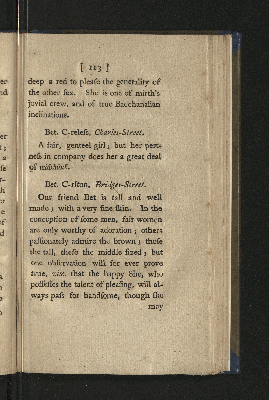 [ 113 ]
deep a red to pleaſe the generality of
the other ſex. She is one of mirth's
jovial crew, and of true Bacchanalian
inclinations.
Bet. C-releſs, Charles-Street.
A fair, genteel girl; but her pert-
neſs in company does her a great deal
of miſchief.
Bet. C-rlton, Bridges-Street.
Our friend Bet is tall and well
made; with a very fine ſkin. In the
conception of ſome men, fair women
are only worthy of adoration; others
paſſionately admire the brown; theſe
the tall, thoſe the middle ſized; but
one obſervation will for ever prove
true, viz. that the happy She, who
poſſeſſes the talent of pleaſing, will al-
ways paſs for handſome, though ſhe
may